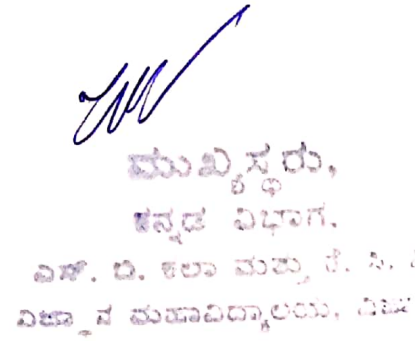 ಮುಖ್ಯಸ್ಥರು,
ಕನ್ನಡ ವಿಭಾಗ.
ಎಸ್. ಬಿ. ಕಲಾ ಮತ್ತು ಕೆ. ಸಿ.
ವಿಜ್ಞಾನ ಮಹಾವಿದ್ಯಾಲಯ,